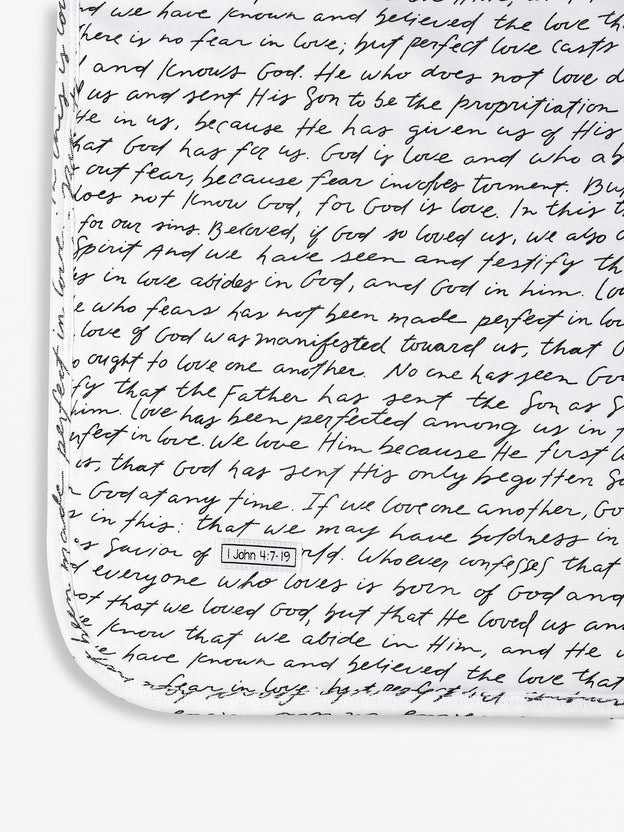 we have known and believed the love th
There is no fear in love; but perfect love casts
and knows God. He who does not love
us and sent His Son to be the propitiation
He in us, because He has given us of His
that God has for us. God is love and who ab
out fear, because fear involves torment. Bu
does not know God, for God is love. In this t
for our sins. Beloved, if God so loved us, we also
Spirit And we have seen and testify th
in love abides in God, and God in him. Lo
e who fears has not been made perfect in lo
love of God was manifested toward us, that
o ought to love one another. No one has seen Go
fy that the Father has sent the Son as S
him. Love has been perfected among us in
rfect in love. We love Him because He first
us, that God has sent His only begotten So
God at any time. If we love one another, Go
s in this: that we may have boldness in
as Savior of rld. Whoever confesses that
1 John 4:7-19
d everyone who loves is born of God and
not that we loved God, but that He loved us an
we know that we abide in Him, and He
we have known and believed the love that
fear in love but perfect
been made perfect in love.